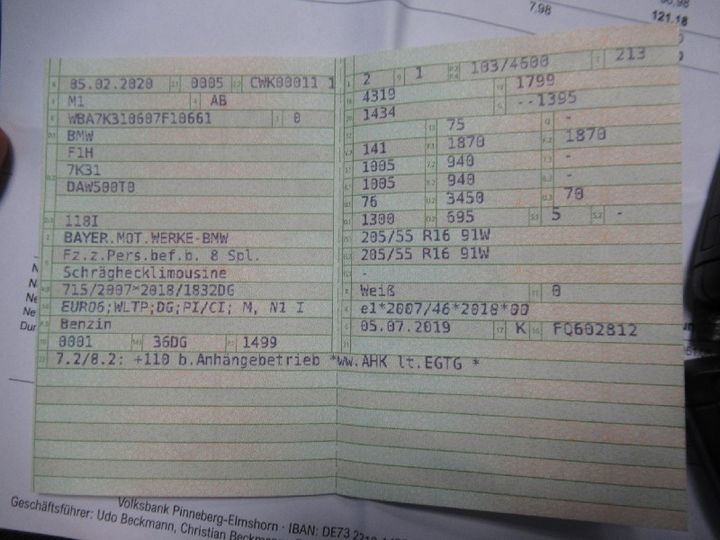 7.98
121.18
05.02.2020 0005 CWK00011 1
M1 AB
WBA7K310607F10661 0
BMW
F1H
7K31
DAW500T0
118I
BAYER.MOT.WERKE-BMW
Fz.z.Pers.bef.b. 8 Spl.
Schräghecklimousine
715/2007*2018/1832DG
EURO6;WLTP;DG;PI/CI; M, N1 I
Benzin
0001 36DG 1499
2 1 103/4600 213
4319 1799
1434 --1395
75 -
141 1870 1870
1005 940 -
1005 940 -
76 3450 70
1300 695 5 -
205/55 R16 91W
205/55 R16 91W
-
Weiß 0
e1*2007/46*2018*00
05.07.2019 K FQ602812
7.2/8.2: +110 b.Anhängebetrieb *ww.AHK lt.EGTG *
Volksbank Pinneberg-Elmshorn · IBAN: DE73
Geschäftsführer: Udo Beckmann, Christian